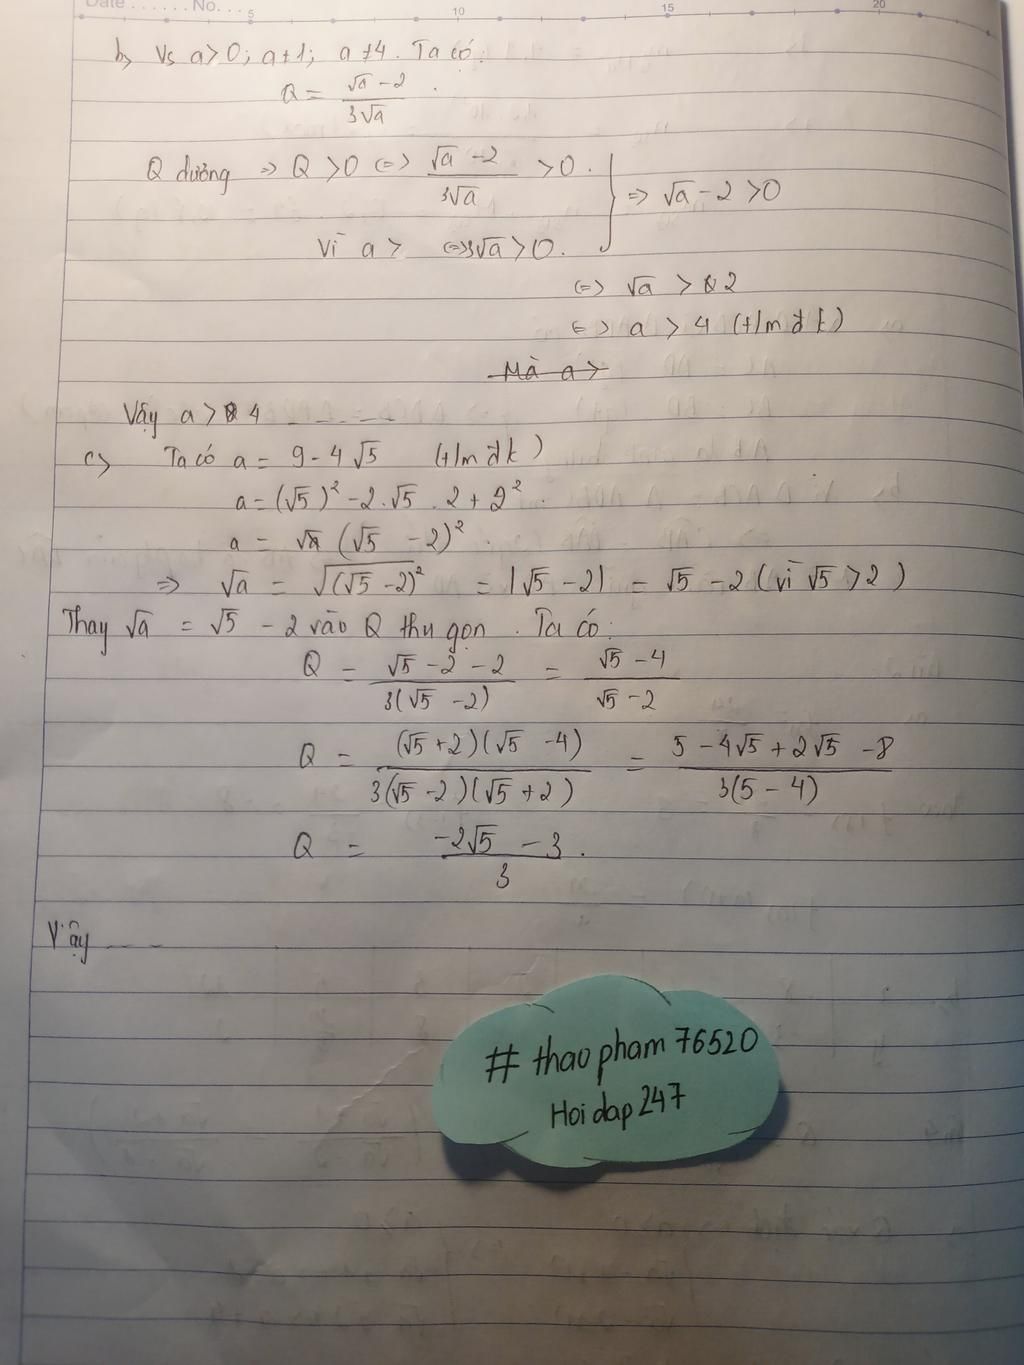 Date ...... No....
5 10 15 20
b, Vs a > 0; a ≠ 1; a ≠ 4. Ta có:
Q = (√a - 2)/(3√a).
Q dương => Q > 0 <=> (√a - 2)/(3√a) > 0. } => √a - 2 > 0
Vì a > <=> 3√a > 0.
<=> √a > 2
<=> a > 4 (t/m đk)
Mà a >
Vậy a > 4 ----
c, Ta có a = 9 - 4√5 (t/m đk)
a = (√5)² - 2.√5 . 2 + 2².
a = (√5 - 2)².
=> √a = √(√5 - 2)² = |√5 - 2| = √5 - 2 (vì √5 > 2)
Thay √a = √5 - 2 vào Q thu gọn. Ta có:
Q = (√5 - 2 - 2)/(3(√5 - 2)) = (√5 - 4)/(√5 - 2)
Q = ((√5 + 2)(√5 - 4))/(3(√5 - 2)(√5 + 2)) = (5 - 4√5 + 2√5 - 8)/(3(5 - 4))
Q = (-2√5 - 3)/3.
Vậy ---
# thao pham 76520
Hoi dap 247